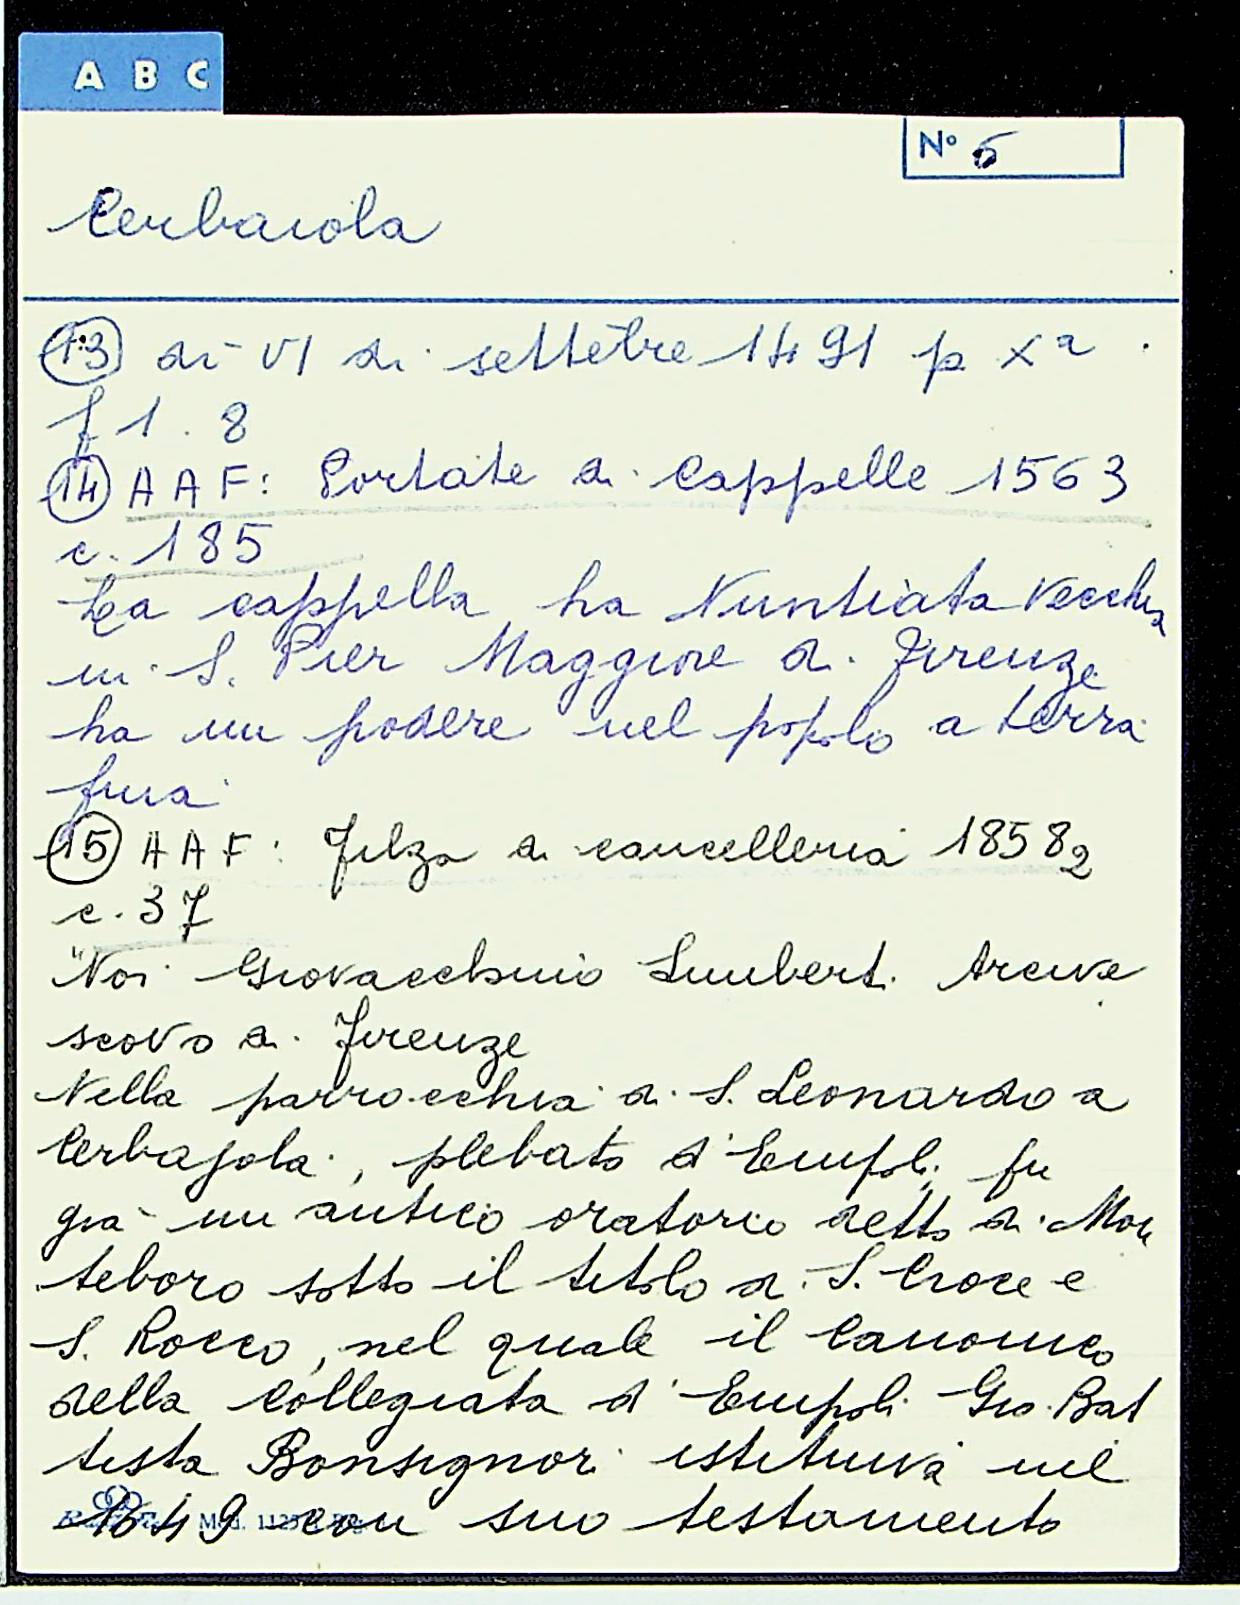 A B C
N° 5
Cerbaiola
13 dì VI di settēbre 1491 p xª
f 1. 8
14 A A F: Portate di Cappelle 1563
c. 185
La cappella ha Nuntiata Vecchia
in S. Pier Maggiore di Firenze
ha un podere nel popolo a terra
fina
15 A A F: Filza di cancelleria 1858₂
c. 37
"Noi Giovacchino Limberti Arcive
scovo di Firenze
Nella parrocchia di S. Leonardo a
Cerbajola, plebato d'Empoli, fu
già un antico oratorio detto di Mon
teboro sotto il titolo di S. Croce e
S. Rocco, nel quale il Canonico
della Collegiata d'Empoli Gio. Bat
tista Bonsignori istituiva nel
1649 con suo testamento